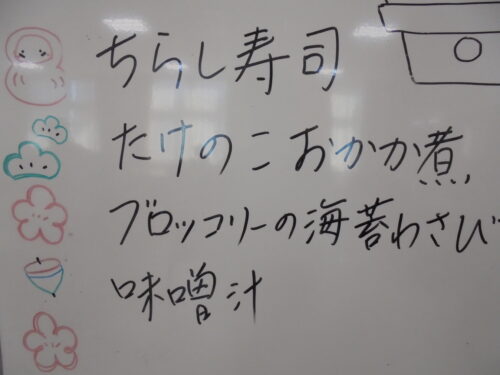 ちらし寿司
たけのこおかか煮
ブロッコリーの海苔わさび
味噌汁